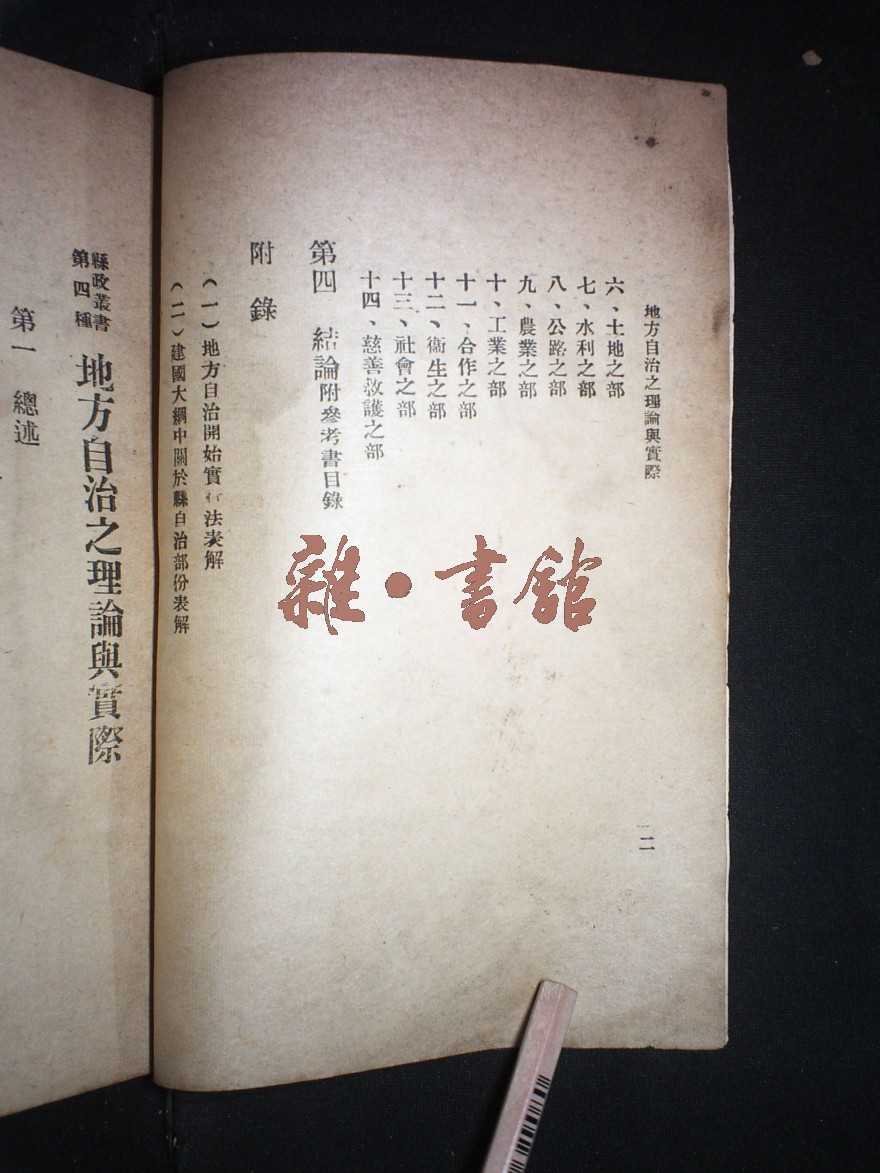 地方自治之理論與實際
六、土地之部
七、水利之部
八、公路之部
九、農業之部
十、工業之部
十一、合作之部
十二、衞生之部
十三、社會之部
十四、慈善救護之部
第四 結論附參考書目錄
附錄
（一）地方自治開始實行法表解
（二）建國大綱中關於縣自治部份表解
二
雜·書館
縣政叢書
第四種
地方自治之理論與實際
第一 總述